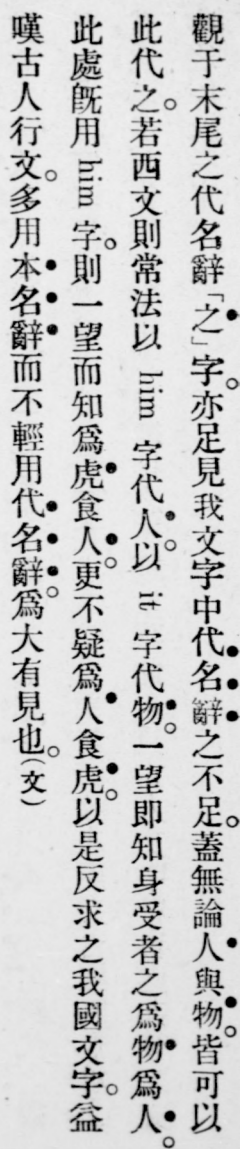 觀于末尾之代名辭「之」字。亦足見我文字中代名辭之不足。蓋無論人與物。皆可以
此代之。若西文則常法以 him 字代人。以 it 字代物。一望即知身受者之爲物爲人。
此處旣用 him 字。則一望而知爲虎食人。更不疑爲人食虎。以是反求之我國文字。益
嘆古人行文。多用本名辭而不輕用代名辭。爲大有見也。(文)